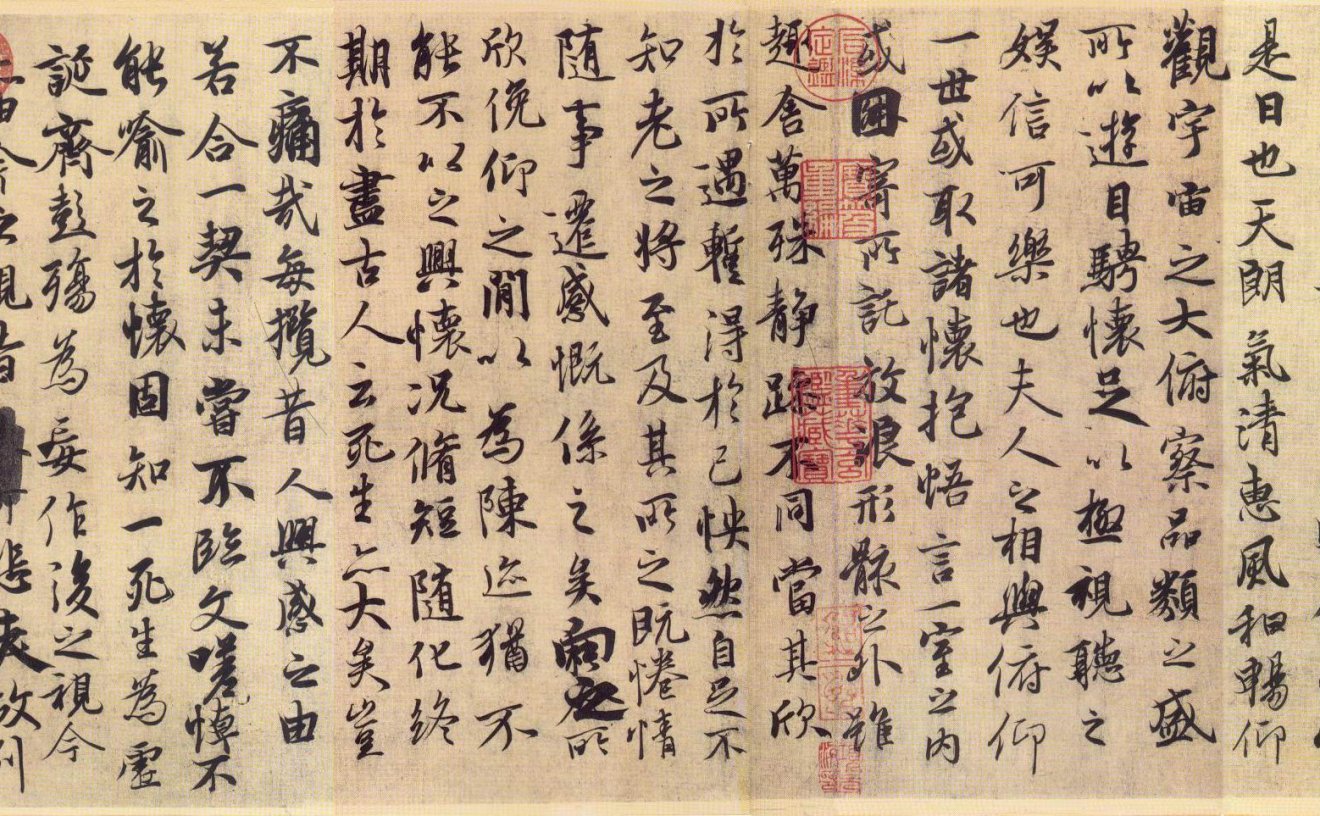 是日也天朗氣清惠風和暢仰
觀宇宙之大俯察品類之盛
所以遊目騁懷足以極視聽之
娛信可樂也夫人之相與俯仰
一世或取諸懷抱悟言一室之內
或因寄所託放浪形骸之外雖
趣舍萬殊靜躁不同當其欣
於所遇暫得於己怏然自足不
知老之將至及其所之既惓情
隨事遷感慨係之矣向之所
欣俛仰之閒以為陳迹猶不
能不以之興懷況脩短隨化終
期於盡古人云死生亦大矣豈
不痛哉每攬昔人興感之由
若合一契未嘗不臨文嗟悼不
能喻之於懷固知一死生為虛
誕齊彭殤為妄作後之視今
由今之視昔 悲夫故列